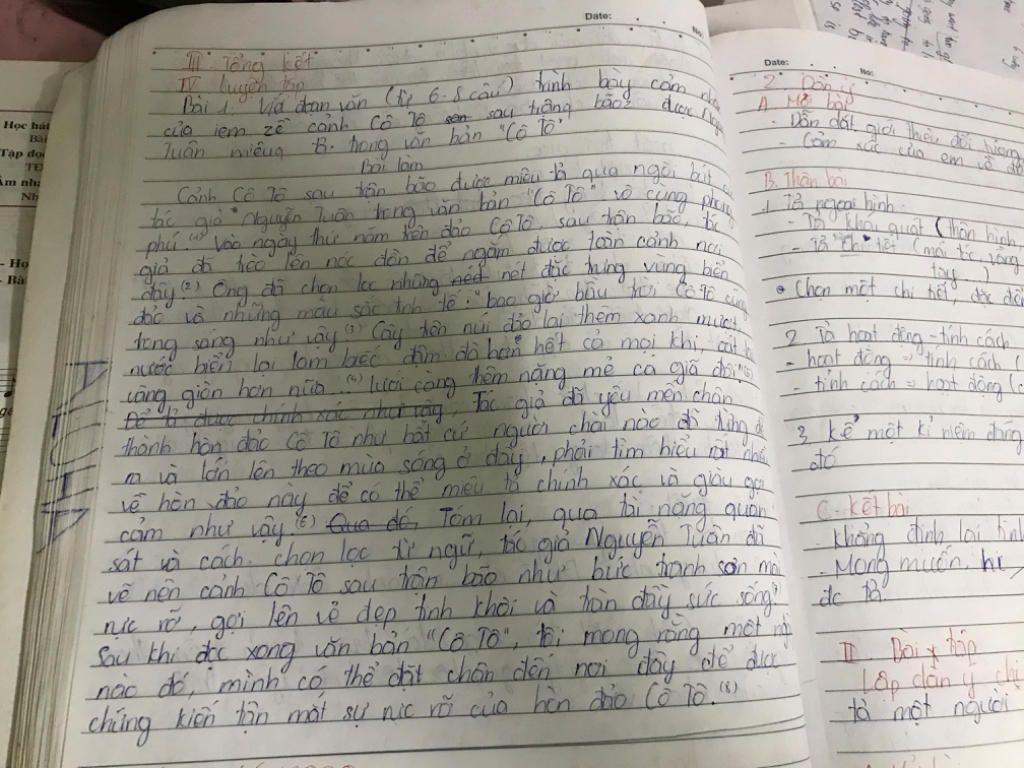 Date:
III Tổng kết
IV Luyện tập
Bài 1. Viết đoạn văn (từ 6-8 câu) trình bày cảm
của em về cảnh Cô Tô sau trông bão được
Tuân miêu tả trong văn bản "Cô Tô"
Bài làm
Cảnh Cô Tô sau trận bão được miêu tả qua ngòi bút
tác giả Nguyễn Tuân trong văn bản "Cô Tô" vô cùng phong
phú.(1) Vào ngày thứ năm trên đảo Cô Tô, sau trận bão, tác
giả đã trèo lên nóc đồn để ngắm được toàn cảnh nơi
đây.(2) Ông đã chọn lọc những nét đặc trưng vùng biển
đảo và những màu sắc tinh tế: "bao giờ bầu trời Cô Tô cũng
trong sáng như vậy(3) Cây trên núi đảo lại thêm xanh mượt
nước biển lại lam biếc đậm đà hơn hết cả mọi khi, cát lại
vàng giòn hơn nữa.(4) lưới càng thêm nặng mẻ cá giã đôi."(5)
Để tả được chính xác như vậy, Tác giả đã yêu mến chân
thành hòn đảo Cô Tô như bất cứ người chài nào đã từng đẻ
ra và lớn lên theo mùa sóng ở đây, phải tìm hiểu rất nhiều
về hòn đảo này để có thể miêu tả chính xác và giàu gợi
cảm như vậy.(6) Qua đó, Tóm lại, qua tài năng quan
sát và cách chọn lọc từ ngữ, tác giả Nguyễn Tuân đã
vẽ nên cảnh Cô Tô sau trận bão như bức tranh sơn mài
rực rỡ, gợi lên vẻ đẹp tinh khôi và tràn đầy sức sống.
Sau khi đọc xong văn bản "Cô Tô", tôi mong rằng một
nào đó, mình có thể đặt chân đến nơi đây để được
chứng kiến tận mắt sự rực rỡ của hòn đảo Cô Tô.(8)
Date: No:
2. Dàn ý
A. Mở bài
- Dẫn dắt, giới thiệu đối tượng
- Cảm xúc của em về
B. Thân bài
1. Tả ngoại hình
- Tả khái quát (thân hình,
- Tả chi tiết (mái tóc,
tay )
Chọn một chi tiết,
2. Tả hoạt động - tính cách
- hoạt động => tính cách (
- tính cách => hoạt động (
3. Kể một kỉ niệm đáng
đó
C. Kết bài
- khẳng định lại tình
- Mong muốn,
đc tả.
II. Bài tập
Lập dàn ý chi
tả một người
Học hát
Bài
Tập đọc